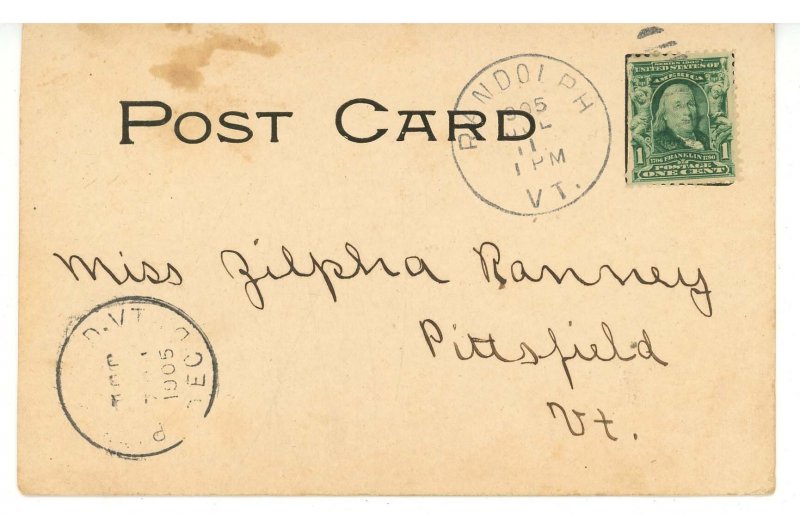 POST CARD
RANDOLPH
1905
JUL
11
1 PM
VT.
SERIES 1902
UNITED STATES OF
AMERICA
1706 FRANKLIN 1790
POSTAGE
1 ONE CENT 1
Miss Zilpha Ranney
Pittsfield
Vt.
VT
1905
REC